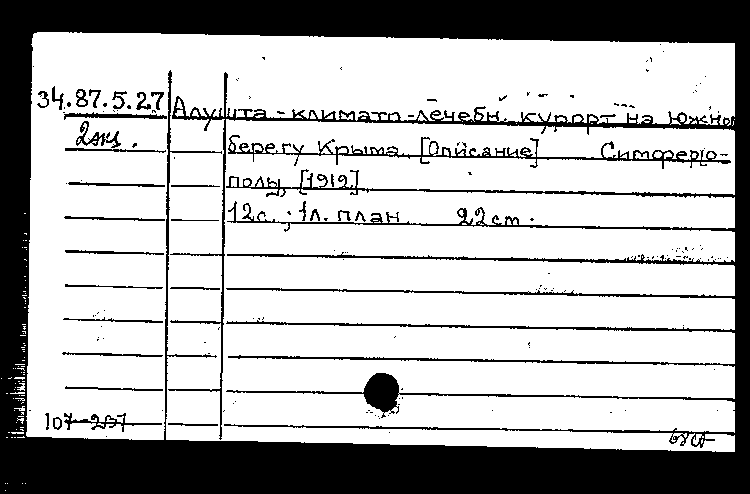 34.87.5.27 Алушта - климато-лечебн. курорт на южном
2экз. берегу Крыма. [Описание] Симферо-
поль, [1912]
12с.; 1л. план. 22 cm.
107-207